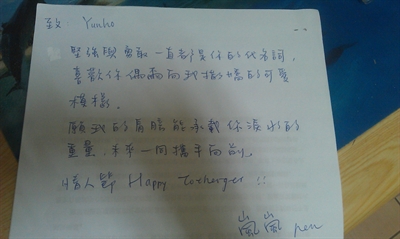 致 Yunho
堅強與勇敢一直都是你的代名詞,
喜歡你偶爾向我撒嬌的可愛
模樣。
願我的肩膀能承載你淚水的
重量,未來一同攜手向前。
情人節 Happy Together !!
嵐嵐 pen